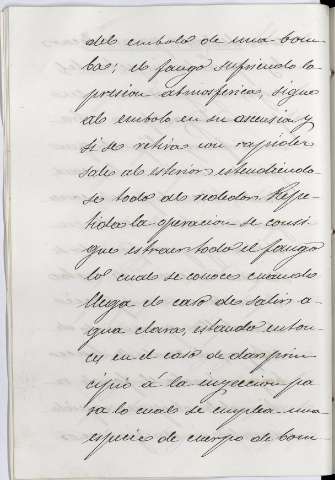 del embolo de una bom-
ba; el fango sufriendo la
presion atmosferica, sigue
al embolo en su ascension y
si se retira con rapidez
sale al esterior estendiendo
se todo al rededor. Repe-
tida la operacion se consi
gue estraer todo el fango
lo cual se conoce cuando
llega el caso de salir a-
gua clara, estando enton-
ces en el caso de dar prin
cipio á la inyeccion pa
ra lo cual se emplea una
especie de cuerpo de bom-